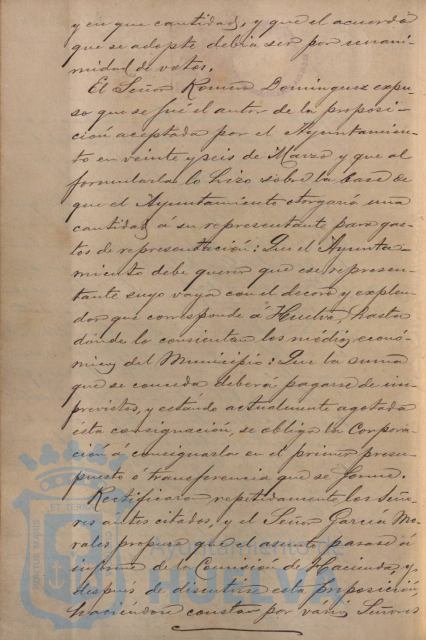 y en que cantidad, y que el acuerdo
que se adopte debia ser por unani-
midad de votos.
El Señor Romero Dominguez expu
so que se fué el autor de la proposi-
ción aceptada por el Ayuntamien-
to en veinte y seis de Marzo y que al
formularla lo hizo sobre la base de
que el Ayuntamiento otorgaria una
cantidad á su representante para gas-
tos de representación: Que el Ayunta-
miento debe querer que ese represen-
tante suyo vaya con el decoro y esplen-
dor que corresponde á Huelva, hasta
dónde lo consientan los medios econó-
micos del Municipio: Que la suma
que se conceda deberá pagarse de im-
previstos, y estándo actualmente agotada
esta consignación, se obliga la Corpora-
ción á consignarla en el primer presu-
puesto ó transferencia que se forme.
Rectificaron repetidamente los Seño-
res antes citados, y el Señor García Mo-
rales propuso que el asunto pasase á
informe de la Comisión de Hacienda, y
después de discutirse esta proposición,
haciéndose constar por varios Señores
Ayuntamiento de
HUELVA
PORTUS MARIS
ET TERRAE